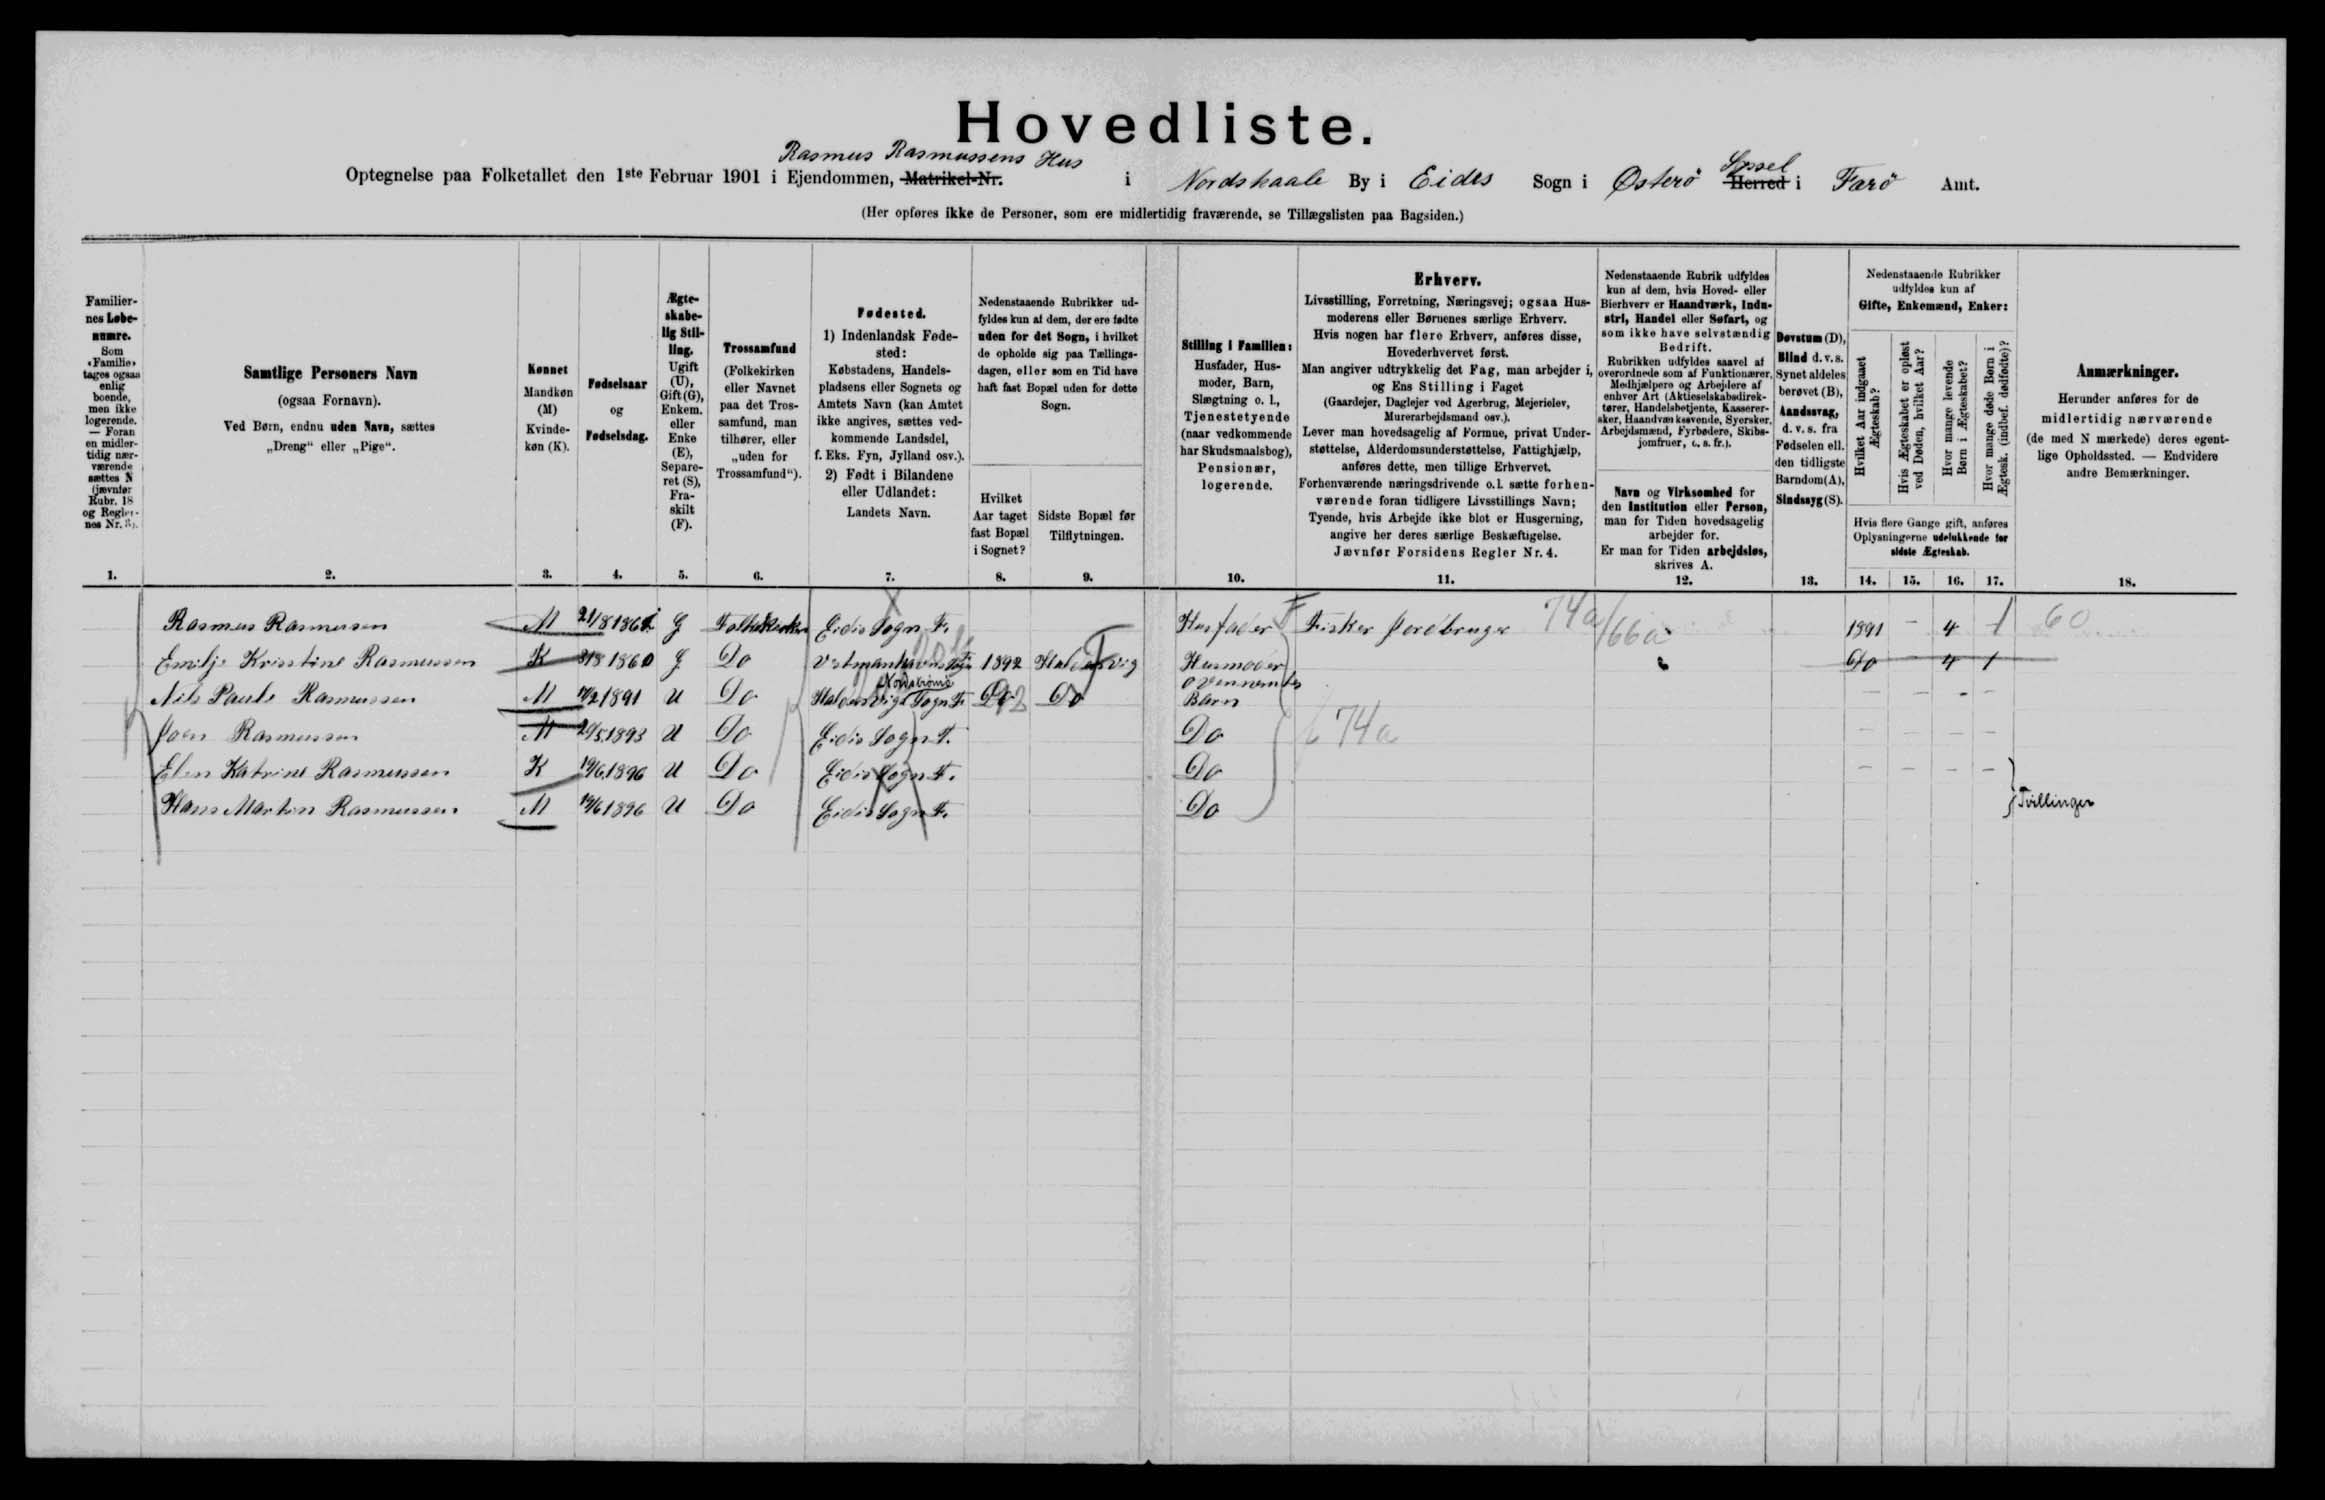 Hovedliste.
Rasmus Rasmussens Hus
Syssel
Optegnelse paa Folketallet den 1ste Februar 1901 i Ejendommen, Matrikel-Nr. i Nordskaale By i Eides Sogn i Østerö Herred i Farö Amt.
(Her opføres ikke de Personer, som ere midlertidig fraværende, se Tillægslisten paa Bagsiden.)
Familier-
nes Løbe-
numre.
Som
«Familie»
tages ogsaa
enlig
boende,
men ikke
logerende.
— Foran
en midler-
tidig nær-
værende
sættes N
(jævnfør
Rubr. 18
og Regler-
nes Nr. 3).
1.
Samtlige Personers Navn
(ogsaa Fornavn).
Ved Børn, endnu uden Navn, sættes
„Dreng“ eller „Pige“.
2.
Kønnet
Mandkøn
(M)
Kvinde-
køn (K).
3.
Fødselsaar
og
Fødselsdag.
4.
Ægte-
skabe-
lig Stil-
ling.
Ugift
(U),
Gift (G),
Enkem.
eller
Enke
(E),
Separe-
ret (S),
Fra-
skilt
(F).
5.
Trossamfund
(Folkekirken
eller Navnet
paa det Tros-
samfund, man
tilhører, eller
„uden for
Trossamfund“).
6.
Fødested.
1) Indenlandsk Føde-
sted:
Købstadens, Handels-
pladsens eller Sognets og
Amtets Navn (kan Amtet
ikke angives, sættes ved-
kommende Landsdel,
f. Eks. Fyn, Jylland osv.).
2) Født i Bilandene
eller Udlandet:
Landets Navn.
7.
Nedenstaaende Rubrikker ud-
fyldes kun af dem, der ere fødte
uden for det Sogn, i hvilket
de opholde sig paa Tællings-
dagen, eller som en Tid have
haft fast Bopæl uden for dette
Sogn.
Hvilket
Aar taget
fast Bopæl
i Sognet?
8.
Sidste Bopæl før
Tilflytningen.
9.
Stilling i Familien:
Husfader, Hus-
moder, Barn,
Slægtning o. l.,
Tjenestetyende
(naar vedkommende
har Skudsmaalsbog),
Pensionær,
logerende.
10.
Erhverv.
Livsstilling, Forretning, Næringsvej; ogsaa Hus-
moderens eller Børnenes særlige Erhverv.
Hvis nogen har flere Erhverv, anføres disse,
Hovederhvervet først.
Man angiver udtrykkelig det Fag, man arbejder i,
og Ens Stilling i Faget
(Gaardejer, Daglejer ved Agerbrug, Mejerielev,
Murerarbejdsmand osv.).
Lever man hovedsagelig af Formue, privat Under-
støttelse, Alderdomsunderstøttelse, Fattighjælp,
anføres dette, men tillige Erhvervet.
Forhenværende næringsdrivende o. l. sætte forhen-
værende foran tidligere Livsstillings Navn;
Tyende, hvis Arbejde ikke blot er Husgerning,
angive her deres særlige Beskæftigelse.
Jævnfør Forsidens Regler Nr. 4.
11.
Nedenstaaende Rubrik udfyldes
kun af dem, hvis Hoved- eller
Bierhverv er Haandværk, Indu-
stri, Handel eller Søfart, og
som ikke have selvstændig
Bedrift.
Rubrikken udfyldes saavel af
overordnede som af Funktionærer,
Medhjælpere og Arbejdere af
enhver Art (Aktieselskabsdirek-
tører, Handelsbetjente, Kasserer-
sker, Haandværkssvende, Syersker,
Arbejdsmænd, Fyrbødere, Skibs-
jomfruer, o. s. fr.).
Navn og Virksomhed for
den Institution eller Person,
man for Tiden hovedsagelig
arbejder for.
Er man for Tiden arbejdsløs,
skrives A.
12.
Døvstum (D),
Blind d. v. s.
Synet aldeles
berøvet (B),
Aandssvag,
d. v. s. fra
Fødselen ell.
den tidligste
Barndom (A),
Sindssyg (S).
13.
Nedenstaaende Rubrikker
udfyldes kun af
Gifte, Enkemænd, Enker:
Hvilket Aar indgaaet
Ægteskab?
Hvis Ægteskabet er opløst
ved Døden, hvilket Aar?
Hvor mange levende
Børn i Ægteskabet?
Hvor mange døde Børn i
Ægtesk. (indbef. dødfødte)?
Hvis flere Gange gift, anføres
Oplysningerne udelukkende for
sidste Ægteskab.
14. 15. 16. 17.
Anmærkninger.
Herunder anføres for de
midlertidig nærværende
(de med N mærkede) deres egent-
lige Opholdssted. — Endvidere
andre Bemærkninger.
18.
Rasmus Rasmussen M G Folkekirken Eidis Sogn F. Husfader F Fisker Jordbruger 74a/66a 1891 – 4 1 60
Emilje Kristine Rasmussen K 31/8 1860 G Do Vestmanhavns Sogn 1892 Haldersvig Husmoder Do 4 1
ovennemtes
Nordstrømø
Nils Paule Rasmussen M 1891 U Do Haldersvigs Sogn F. Do Do Barn – – – –
Joen Rasmussen M 1893 U Do Eidis Sogn F. Do 74a – – – –
Elin Katrine Rasmussen K 19/6 1896 U Do Eidis Sogn F. Do – – – –
Hans Martin Rasmussen M 19/6 1896 U Do Eidis Sogn F. Do Tvillinger